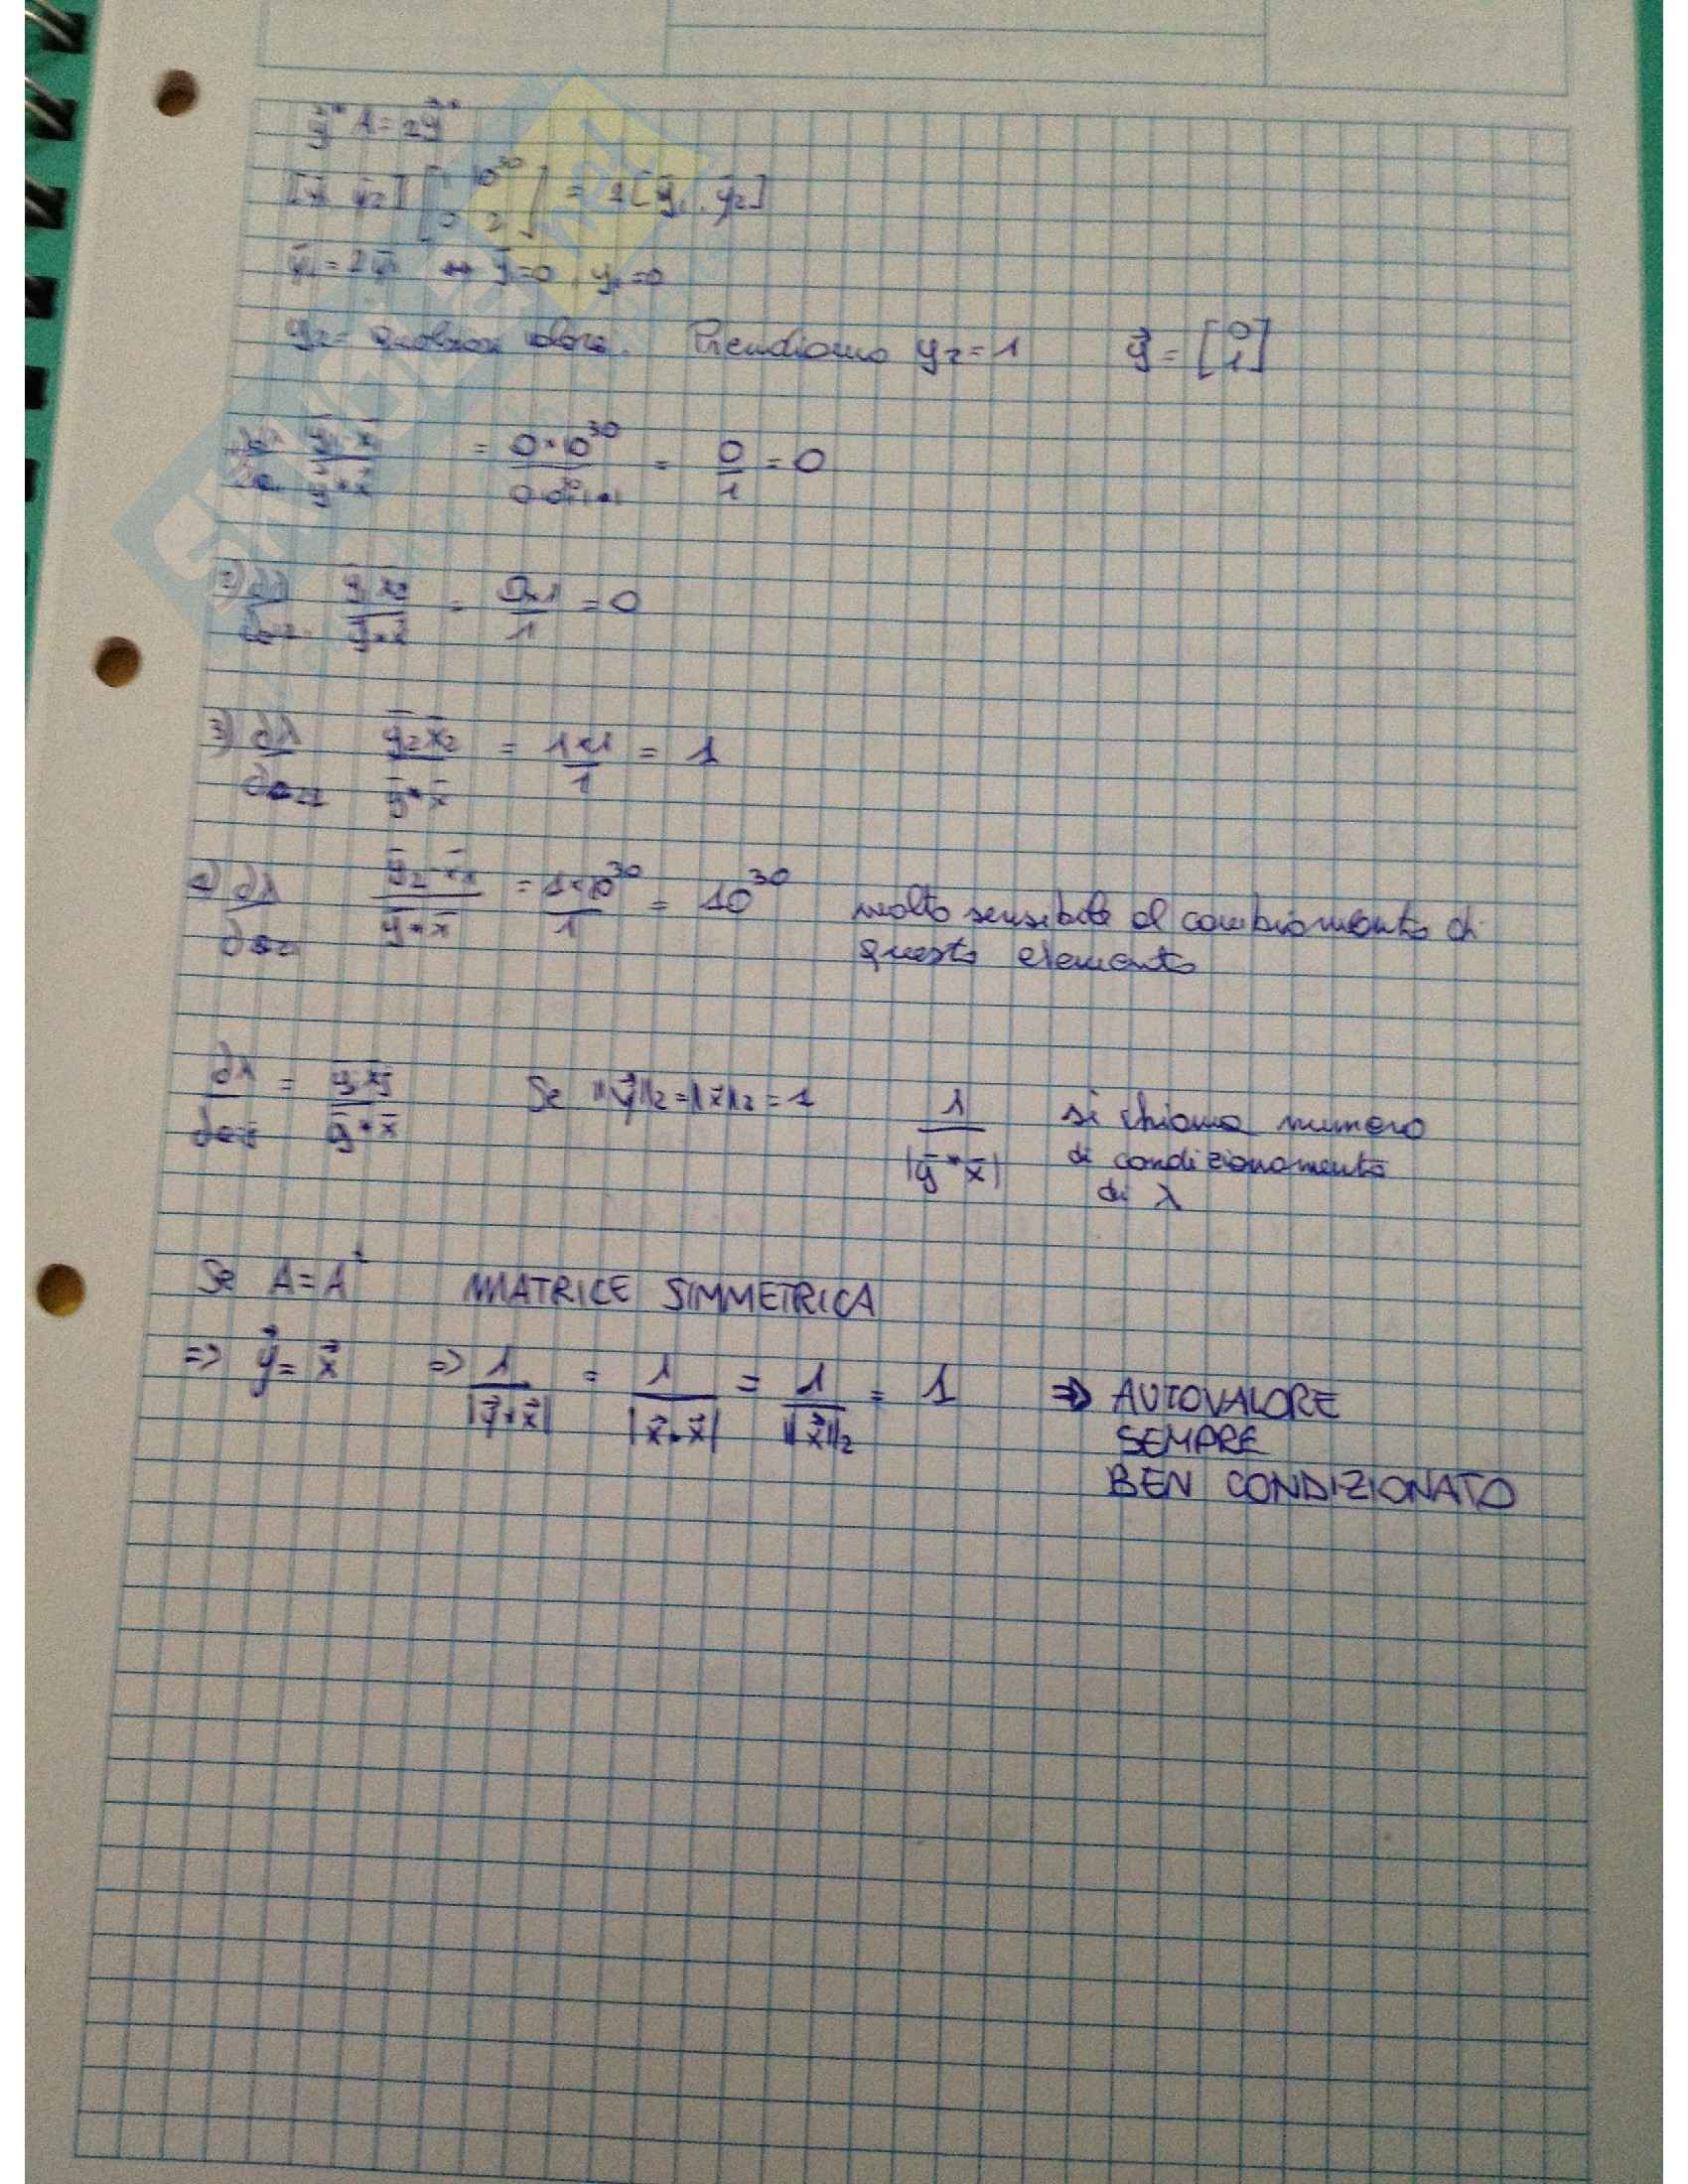 ȳ* A = 2ȳ*
[ȳ₁ ȳ₂] [1 10³⁰ 0 2] = 2[ȳ₁, ȳ₂]
ȳ₁ = 2ȳ₁ ↔ ȳ₁=0, y₁=0
y₂= valore. Prendiamo y₂=1 y⃗ = [0 1]
ȳ₁ x̄₁ / ȳ*x̄ = 0·10³⁰ / = 0/1 = 0
2) ∂λ/∂a₁₂ ȳ₁x̄₂ / ȳ*x̄ = 0×1/1 = 0
3) ∂λ/∂a₂₂ ȳ₂x̄₂ / ȳ*x̄ = 1×1/1 = 1
∂λ/∂a₂₁ ȳ₂ x̄₁ / ȳ*x̄ = 1×10³⁰/1 = 10³⁰ molto sensibile al cambiamento di
questo elemento
∂λ/∂aᵢⱼ = ȳᵢ x̄ⱼ / ȳ*x̄ Se ||y⃗||₂=||x⃗||₂=1 1/|ȳ*x̄| si chiama numero
di condizionamento
di λ
Se A=A* MATRICE SIMMETRICA
=> y⃗= x⃗ => 1/|y⃗*x⃗| = 1/|x⃗*x⃗| = 1/||x⃗||₂ = 1 => AUTOVALORE
SEMPRE
BEN CONDIZIONATO